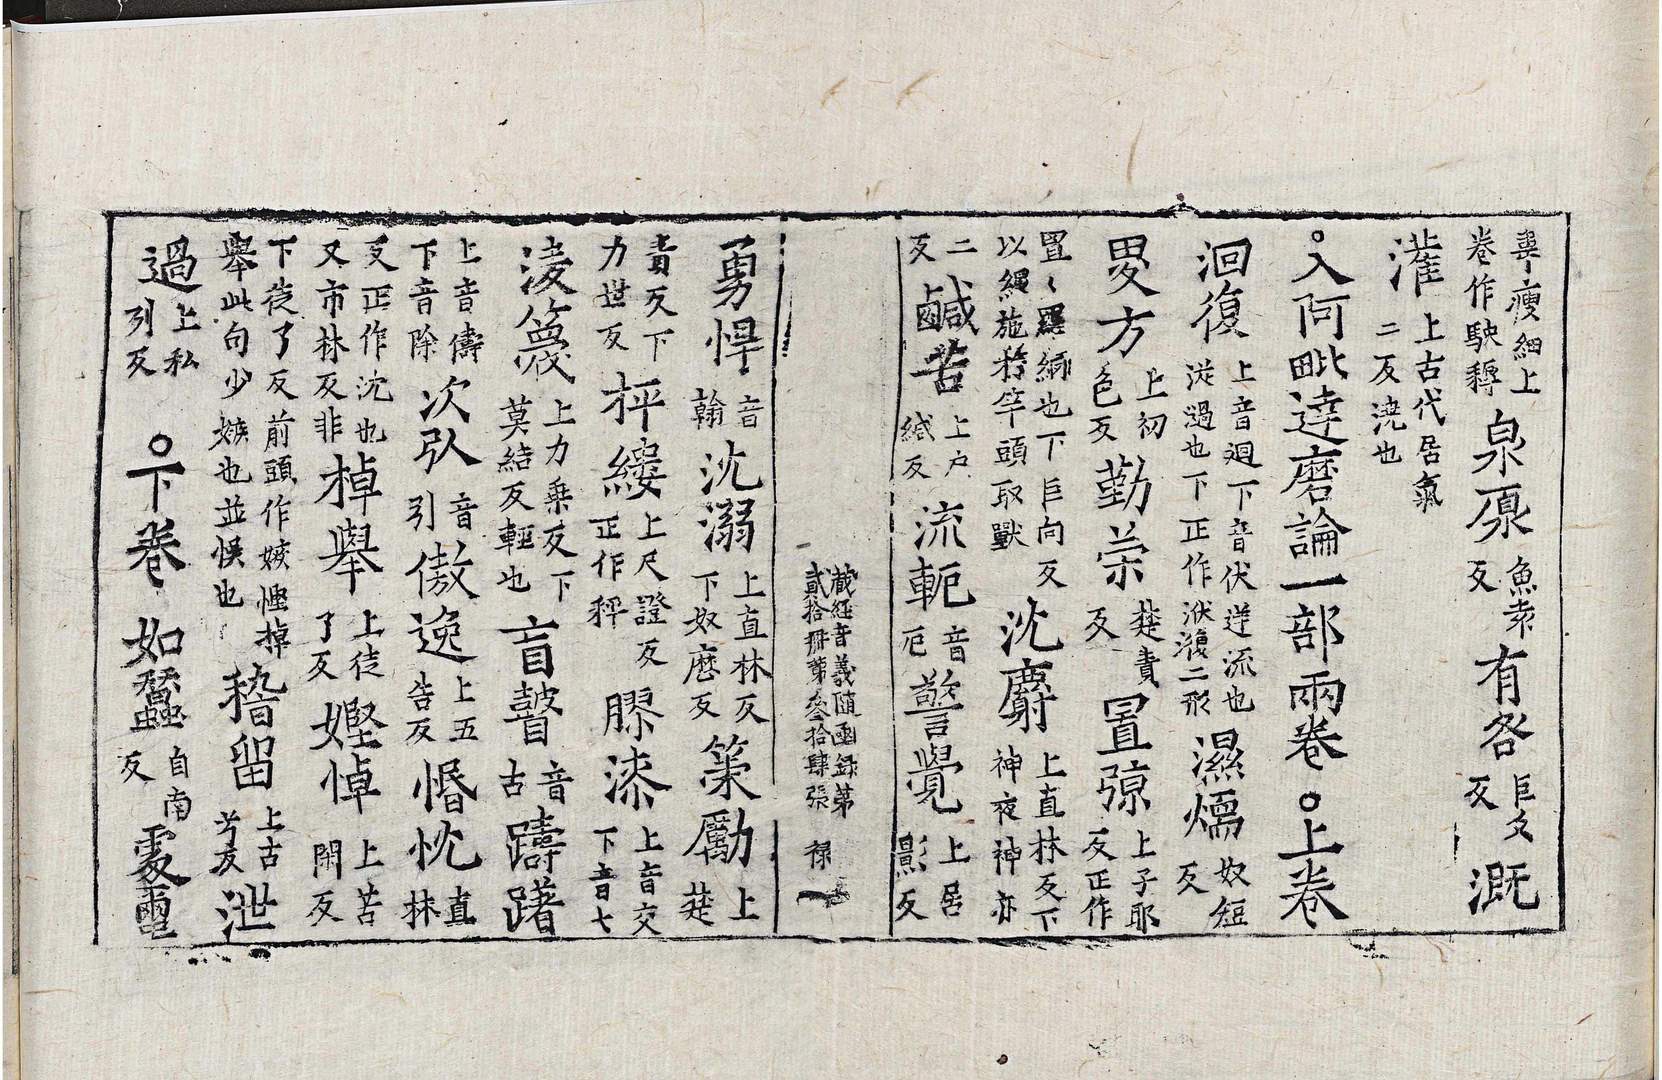 㓻瘦細上卷作駛轉泉原魚袁反有咎巨久反溉
灌上古代居氣二反澆也
○入阿毗達磨論一部兩卷○上卷
洄復上音迴下音伏逆流也㳂過也下正作洑澓二形濕煗奴短反
畟方上初色反勤策楚責反罝弶上子耶反正作
罝〻羅綱也下巨向反以繩施於竿頭取獸沈麝上直林反下神夜神亦
二反鹹苦上户緘反流軛音厄警覺上居影反
藏經音義隨函録第貳拾冊第叄拾肆張 禄一
勇悍音翰沈溺上直林反下奴歷反策勵上楚
責反下力世反枰縷上尺證反正作秤膠漆上音交下音七
淩篾上力乗反下莫結反輕也盲瞽音古躊躇
上音儔下音除次引音引傲逸上五告反惛忱直林
反正作沈也又市林反非掉舉上徒了反慳悼上苦閑反
下徒了反前頭作嫉慳掉舉此句少嫉也並悮也稽留上古兮反泄
過上私列反○下卷如蠶自南反覆電